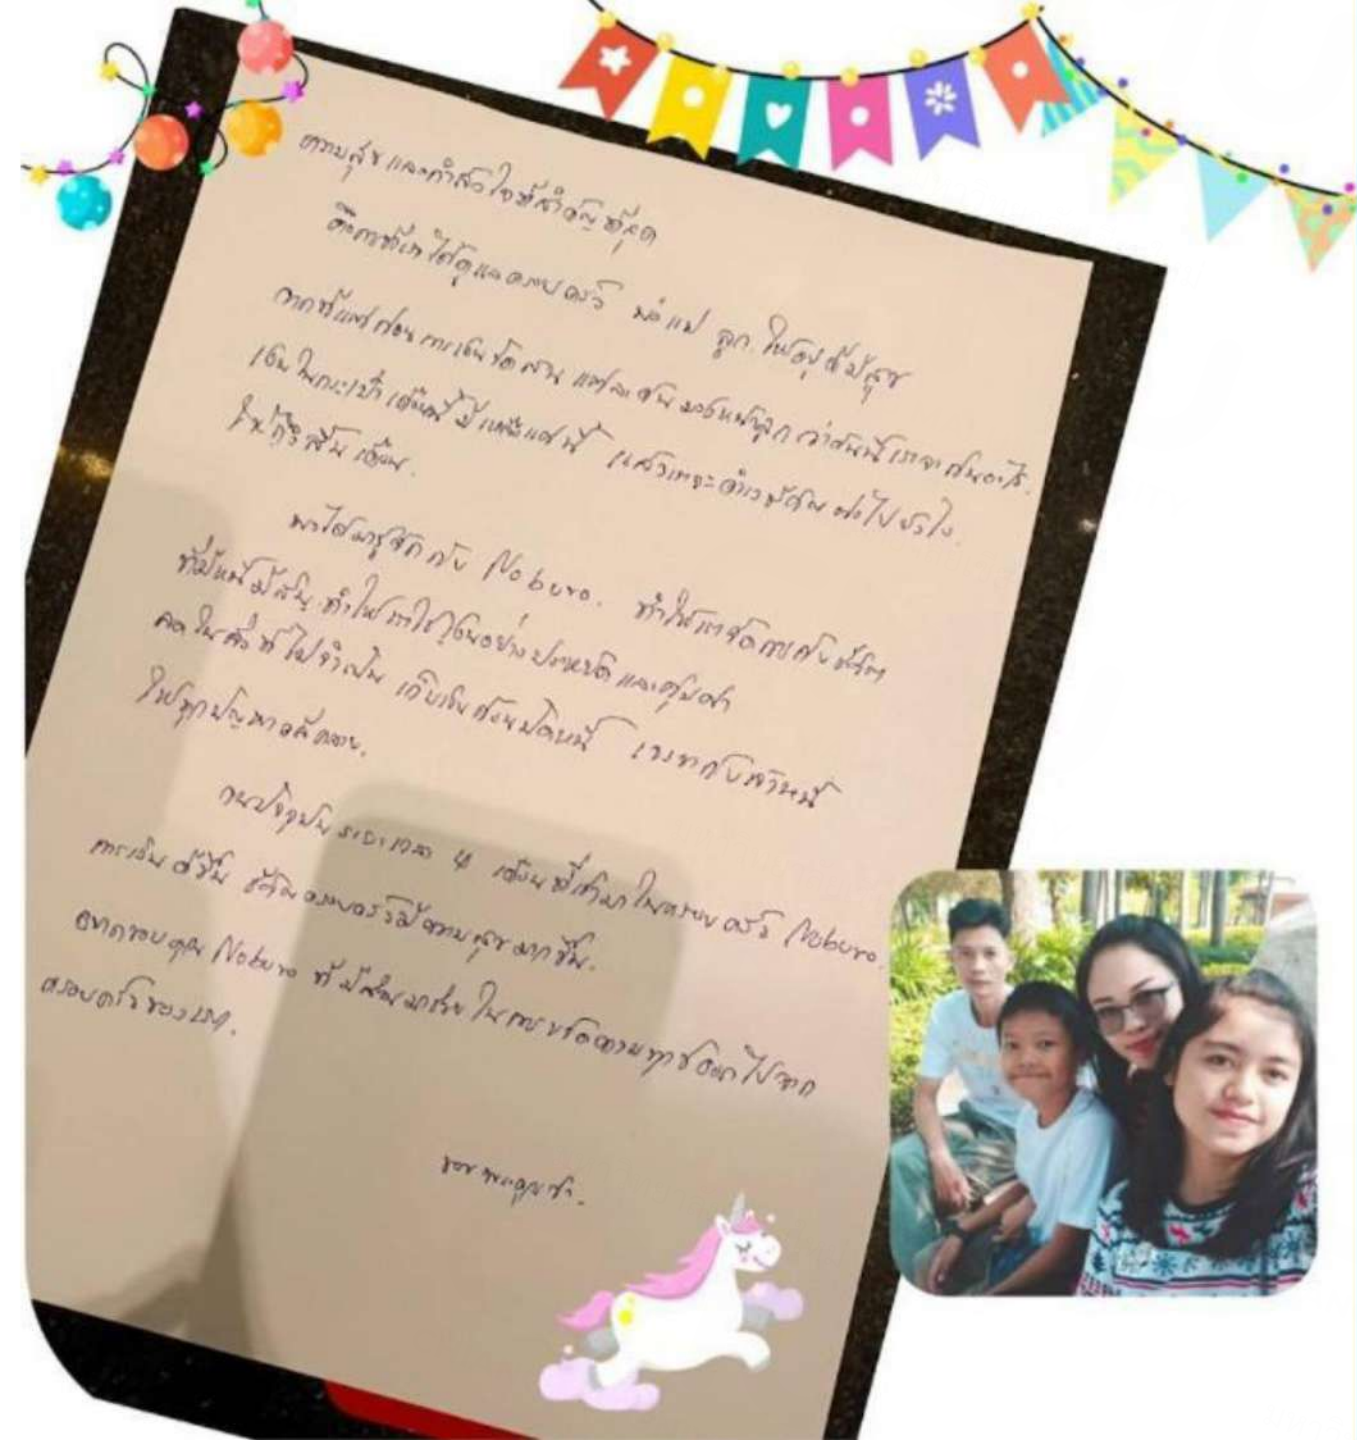 ความสุข และกำลังใจที่สำคัญที่สุด
คือการที่เราได้ดูแลครอบครัว พ่อ แม่ ลูก ให้อยู่ดีมีสุข
จากที่แต่ก่อน การเงินขัดสน แต่ละเดือน มองหน้าลูก ว่าวันนี้เราจะกินอะไร
เงินในกระเป๋า เดือนนี้มีเหลือแค่นี้ แล้วเราจะดำเนินชีวิตต่อไปยังไง
ให้ถึงสิ้นเดือน.
พอได้มารู้จักกับ Noburo. ทำให้เราจัดการกับชีวิต
ที่มีหนี้มีสิน. ทำให้เราใช้เงินอย่างประหยัด และคุ้มค่า
ลด ในสิ่งที่ไม่จำเป็น เก็บเงินก้อนปิดหนี้ เจรจากับเจ้าหนี้
ให้ทุกปัญหาคลี่คลาย.
จนปัจจุบัน ระยะเวลา 4 เดือน ที่เข้ามาในครอบครัว Noburo.
การเงินดีขึ้น ชีวิตครอบครัวมีความสุขมากขึ้น.
อยากขอบคุณ Noburo ที่มีส่วนมาช่วยในการขจัดความทุกข์ออกไปจาก
ครอบครัวของเรา.
ขอบพระคุณค่ะ.